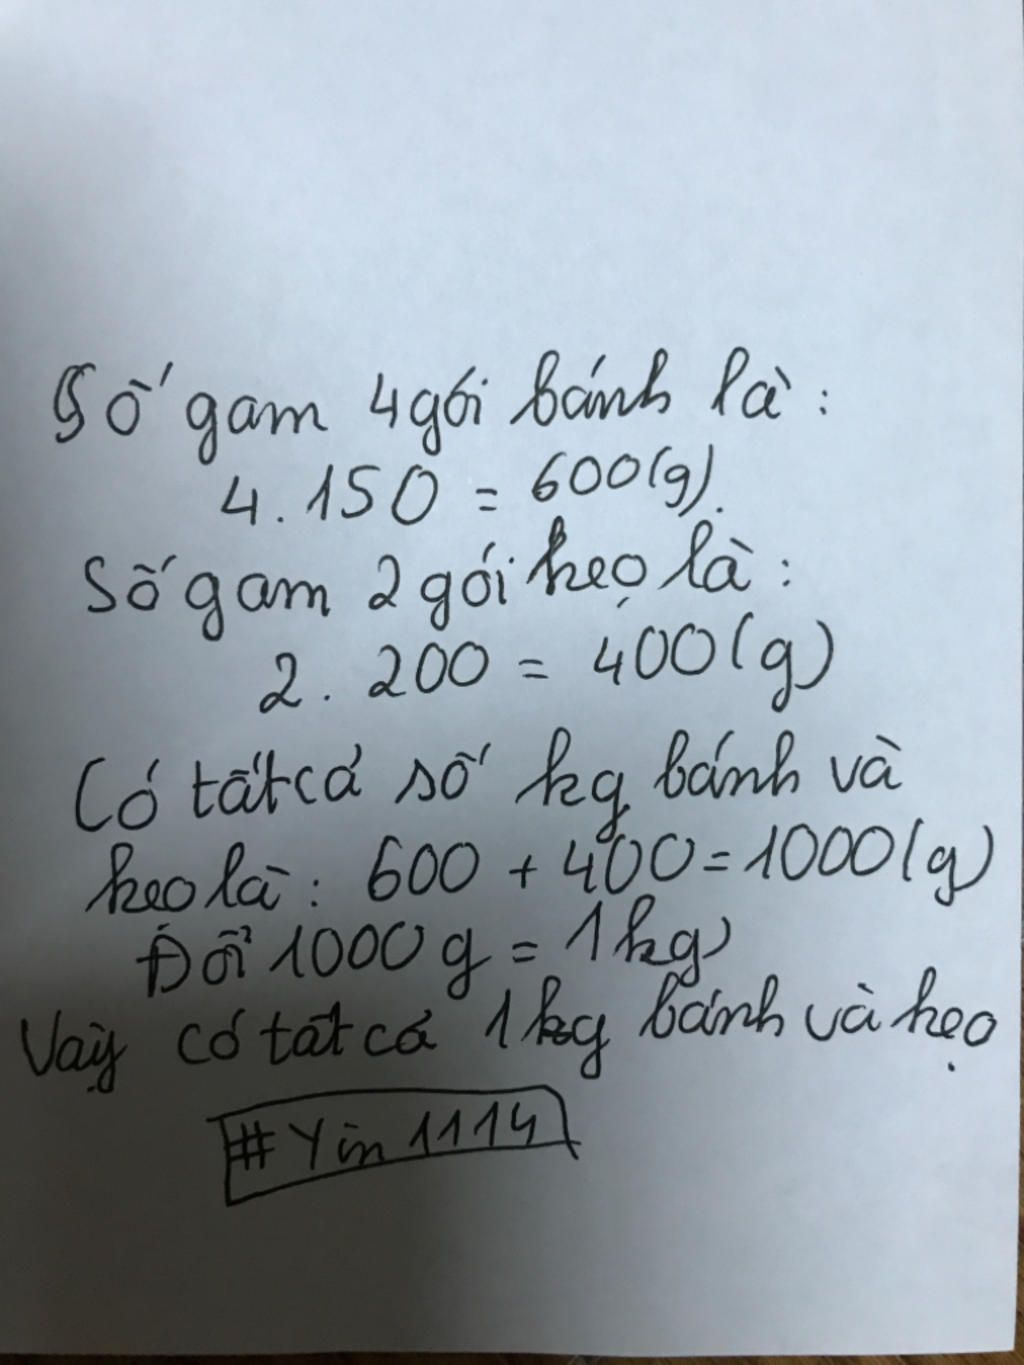 Số gam 4 gói bánh là:
4.150 = 600(g).
Số gam 2 gói kẹo là:
2. 200 = 400(g)
Có tất cả số kg bánh và
kẹo là: 600 + 400 = 1000(g)
Đổi 1000g = 1kg
Vậy có tất cả 1kg bánh và kẹo
#Yin 1114